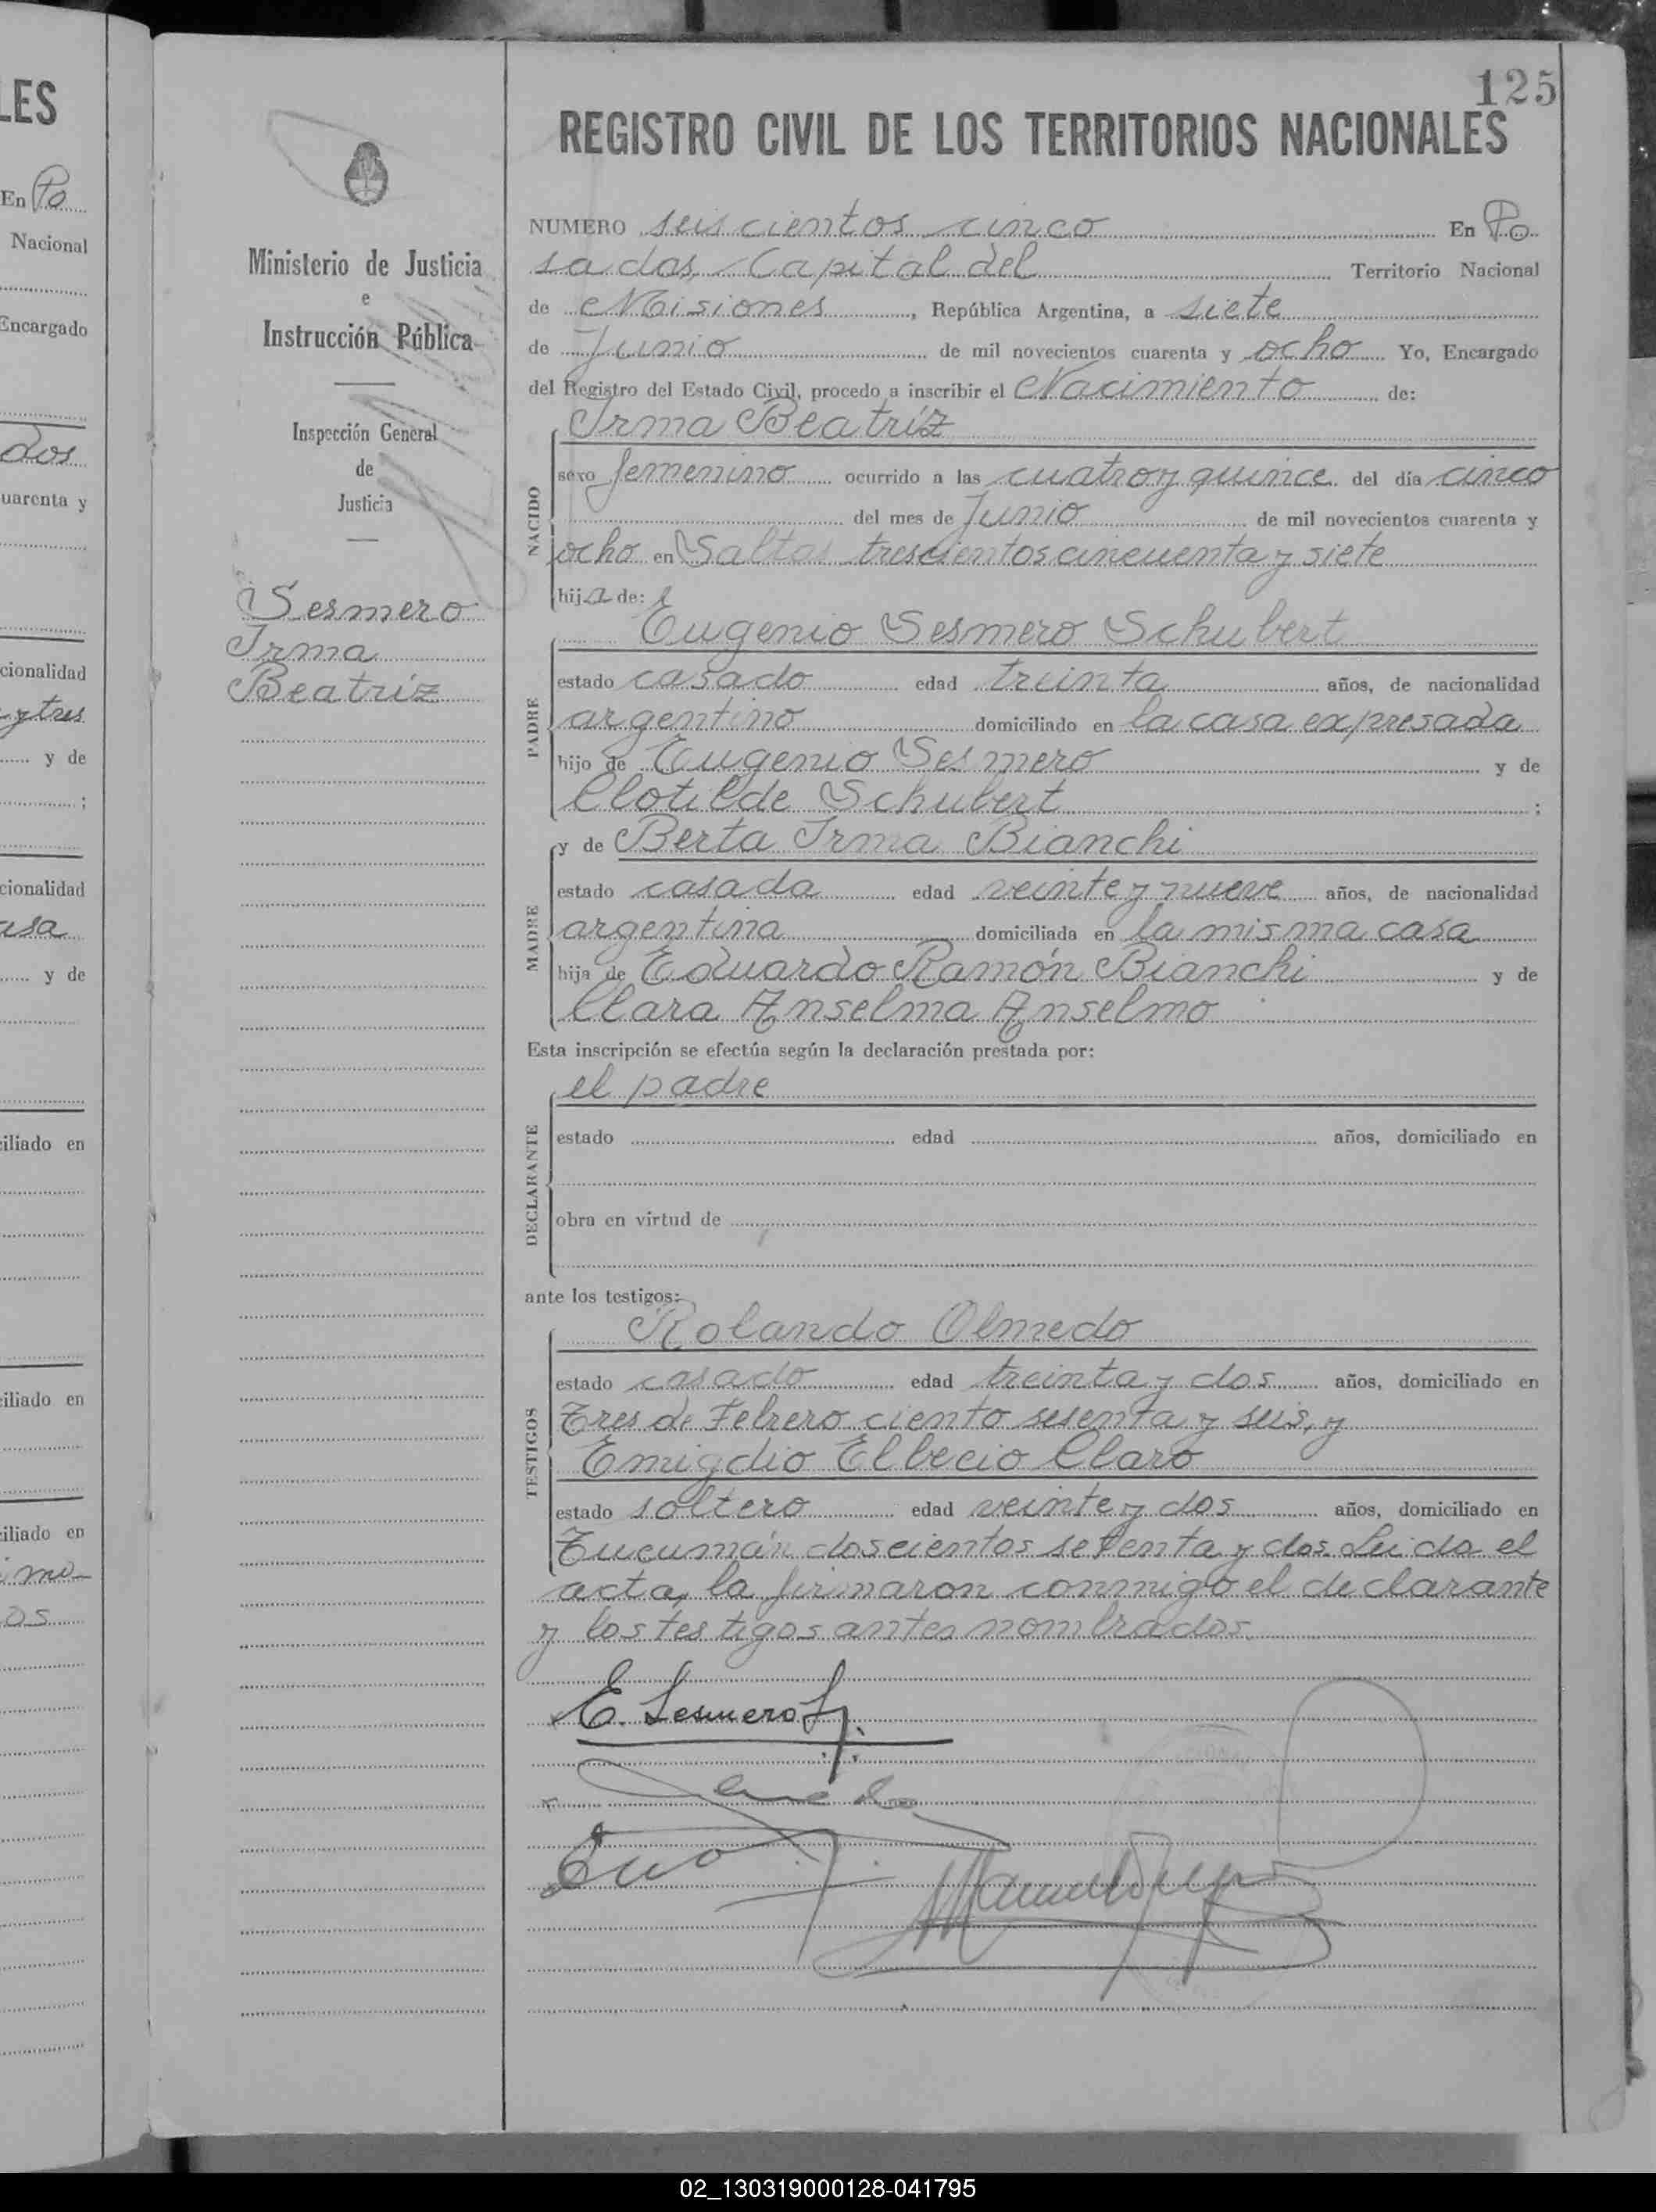 LES
En Po
Nacional
Encargado
dos
uarenta y
cionalidad
y tres
y de
;
cionalidad
asa
y de
iliado en
iliado en
iliado en
mo
os
Ministerio de Justicia
e
Instrucción Pública
Inspección General
de
Justicia
Sesmero
Irma
Beatríz
125
REGISTRO CIVIL DE LOS TERRITORIOS NACIONALES
NUMERO seiscientos cinco En Po
sadas, Capital del Territorio Nacional
de Misiones, República Argentina, a siete
de Junio de mil novecientos cuarenta y ocho Yo, Encargado
del Registro del Estado Civil, procedo a inscribir el Nacimiento de:
Irma Beatríz
NACIDO
sexo femenino ocurrido a las cuatro y quince del día cinco
del mes de Junio de mil novecientos cuarenta y
ocho en Salta trescientos cincuenta y siete
hija de:
Eugenio Sesmero Schubert
PADRE
estado casado edad treinta años, de nacionalidad
argentino domiciliado en la casa expresada
hijo de Eugenio Sesmero y de
Clotilde Schubert ;
y de Berta Irma Bianchi
MADRE
estado casada edad veinte y nueve años, de nacionalidad
argentina domiciliada en la misma casa
hija de Eduardo Ramón Bianchi y de
Clara Anselma Anselmo
Esta inscripción se efectúa según la declaración prestada por:
el padre
DECLARANTE
estado edad años, domiciliado en
obra en virtud de
ante los testigos:
Rolando Olmedo
TESTIGOS
estado casado edad treinta y dos años, domiciliado en
Tres de Febrero ciento sesenta y seis, y
Emigdio Elbecio Claro
estado soltero edad veinte y dos años, domiciliado en
Tucumán doscientos setenta y dos. Leida el
acta, la firmaron conmigo el declarante
y los testigos antes nombrados.
E. Sesmero S.
02_130319000128-041795